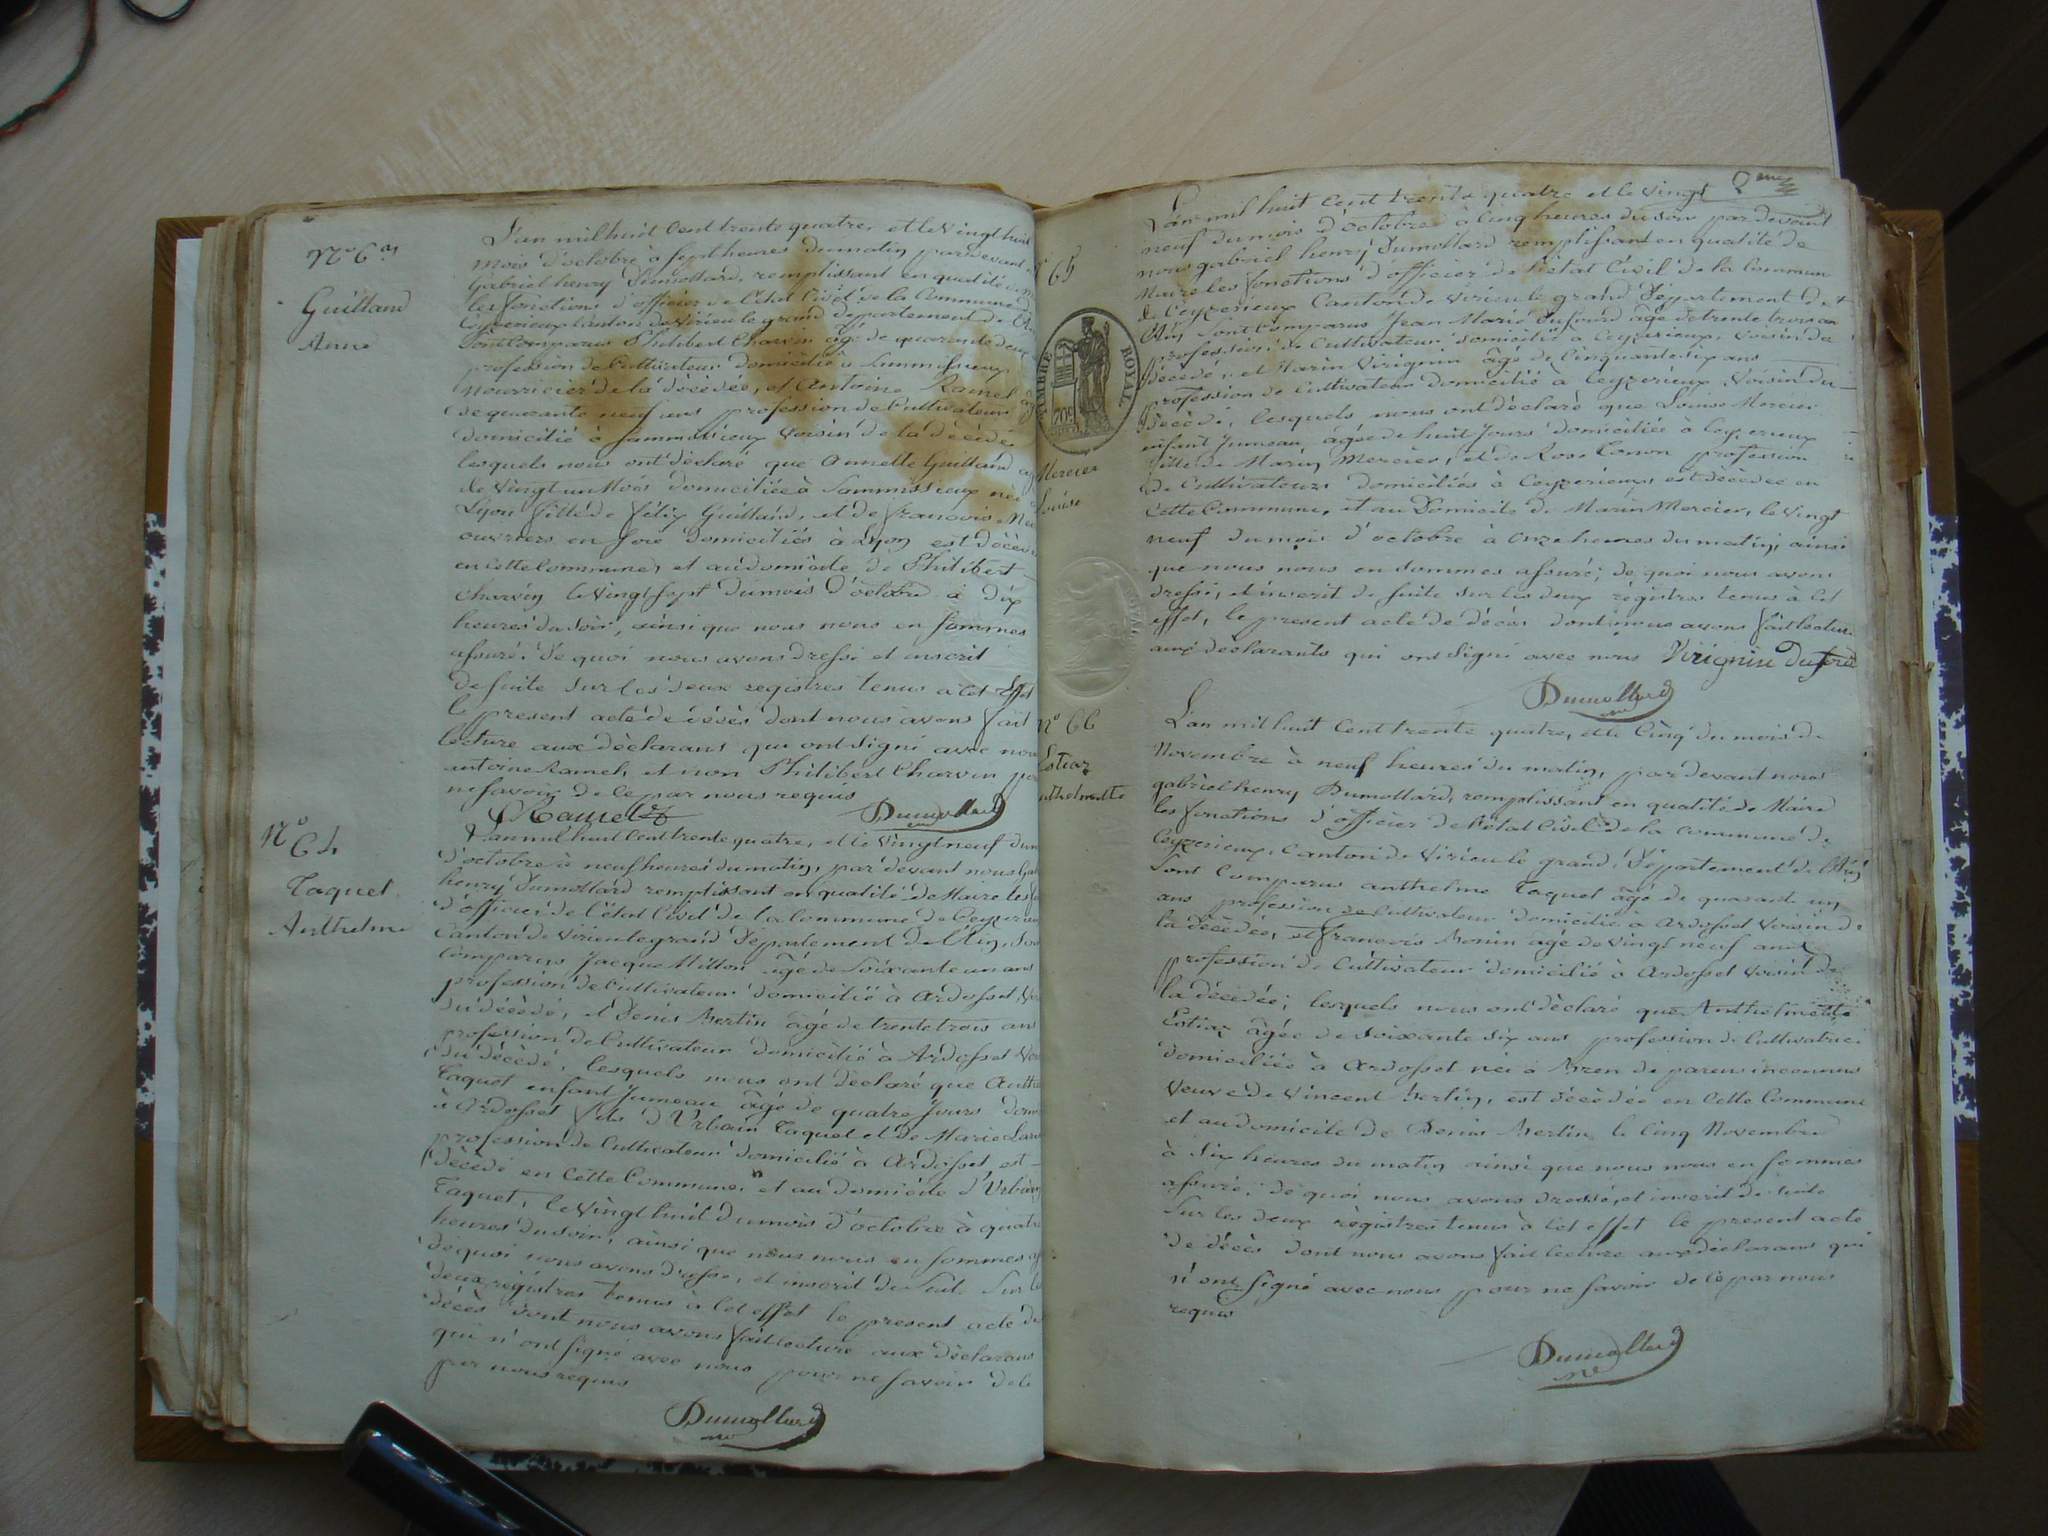 N° 63
Guilland
Anne
L'an mil huit cent trente quatre, et le vingt huit
mois d'octobre à sept heures du matin par devant
Gabriel henry Dumollard, remplissant en qualité de
les fonctions d'officier de l'état Civil de la Commune de
Ceyzerieux Canton de Virieu le grand departement de
sont Comparus Philibert Charvin âgé de quarante deux
profession de Cultivateur domicilié à Sammissieux
nourricier de la décédée, et Antoine Ramel âgé
de quarante neuf ans profession de Cultivateur
domicilié à Sammissieux voisin de la décédée
lesquels nous ont déclaré que Annette Guilland
de vingt un Mois domiciliée à Sammissieux née
Lyon fille de félix Guilland, et de françois
ouvriers en soie domiciliés à Lyon est décédée
en cette Commune, et au domicile de Philibert
Charvin le vingt sept du mois d'octobre à dix
heures du soir, ainsi que nous nous en sommes
assuré. De quoi nous avons dressé et inscrit
de suite sur les deux registres tenus à cet effet
le present acte de décès dont nous avons fait
lecture aux déclarans qui ont signé avec nous
antoine Ramel, et non Philibert Charvin pour
ne savoir de ce par nous requis
Ramel Dumollard
N° 64
Taquet
Anthelme
L'an mil huit cent trente quatre, et le vingt neuf du
d'octobre à neuf heures du matin, par devant nous
henry Dumollard remplissant en qualité de Maire les
d'officier de l'état Civil de la Commune de Ceyzerieux
Canton de Virieu le grand Département de l'Ain, sont
Comparus Jacque Milton âgé de soixante un ans
profession de Cultivateur domicilié à Ardosset,
du décédé, et Denis Bertin âgé de trente trois ans
profession de Cultivateur domicilié à Ardosset
du décédé, lesquels nous ont déclaré que
Taquet enfant Jumeau âgé de quatre Jours
à Ardosset fils d'Urbain Taquet et de Marie
profession de Cultivateur domicilié à Ardosset, est
décédé en cette Commune et au domicile d'Urbain
Taquet, le vingt huit du mois d'octobre à quatre
heures du soir, ainsi que nous nous en sommes
de quoi nous avons dressé, et inscrit de suite sur les
deux régistres tenus à cet effet le present acte de
décès dont nous avons fait lecture aux déclarans
qui n'ont signé avec nous pour ne savoir de ce
par nous requis
Dumollard
65
TIMBRE ROYAL
70c
Mercier
Louise
L'an mil huit cent trente quatre et le vingt
neuf du mois d'octobre à cinq heures du soir par devant
nous gabriel henry Dumollard remplissant en qualité de
Maire les fonctions d'officier de l'état Civil de la Commune
de Ceyzerieux Canton de Virieu le grand Département de
l'Ain, sont Comparus Jean Marie Dufour âgé de trente trois ans
profession de Cultivateur domicilié à Ceyzerieux, voisin du
décédé, et Marin Virignin âgé de Cinquante six ans
profession de Cultivateur domicilié à Ceyzerieux, voisin du
décédé, lesquels nous ont déclaré que Louise Mercier
enfant Jumeau âgée de huit Jours domiciliée à Ceyzerieux
fille de Marin Mercier, et de Rose profession
de Cultivateurs domiciliés à Ceyzerieux, est décédée en
cette Commune, et au Domicile de Marin Mercier, le vingt
neuf du mois d'octobre à onze heures du matin, ainsi
que nous nous en sommes assuré; de quoi nous avons
dressé, et inscrit de suite sur les deux régistres tenus à cet
effet, le present acte de décès dont nous avons fait lecture
aux déclarants qui ont signé avec nous Virignin
Dumollard
N° 66
Estiar
L'an mil huit cent trente quatre, et le Cinq du mois de
Novembre à neuf heures du matin, par devant nous
gabriel henry Dumollard, remplissant en qualité de Maire
les fonctions d'officier de l'état Civil de la commune de
Ceyzerieux, Canton de Virieu le grand, Département de l'Ain
sont Comparus anthelme Taquet âgé de quarante un
ans profession de Cultivateur domicilié à Ardosset voisin de
la décédée, et françois Bonin âgé de vingt neuf ans
profession de Cultivateur domicilié à Ardosset voisin de
la décédée; lesquels nous ont déclaré que Anthelmette
Estiar âgée de soixante six ans profession de Cultivatrice
domiciliée à Ardosset née à Bren de parens inconnus
veuve de Vincent Bertin, est décédée en Cette Commune
et au domicile de Denis Bertin le Cinq Novembre
à Six heures du matin ainsi que nous nous en sommes
assuré; de quoi nous avons dressé, et inscrit de suite
sur les deux règistres tenus à cet effet le present acte
de décès dont nous avons fait lecture aux déclarans qui
n'ont signé avec nous pour ne savoir de ce par nous
requis
Dumollard